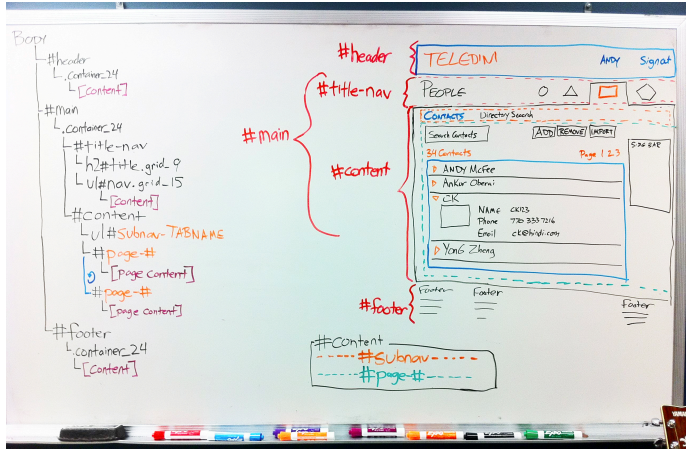 BODY
#header
.container_24
[content]
#main
.container_24
#title-nav
h2#title.grid_9
ul#nav.grid_15
[content]
#content
ul#subnav-TABNAME
#page-#
[page content]
#page-#
[page content]
#footer
.container_24
[content]
#header
#title-nav
#main
#content
#footer
TELEDINI ANDY Signout
PEOPLE
CONTACTS Directory Search
Search Contacts ADD REMOVE IMPORT
SIDE BAR
34 Contacts Page 1 2 3
ANDY McFee
Ankur Oberoi
CK
NAME CK123
Phone 770 333 7216
Email ck@hindi.com
YONG Zheng
Footer Footer Footer
#Content
#subnav
#page-#
YAMAHA